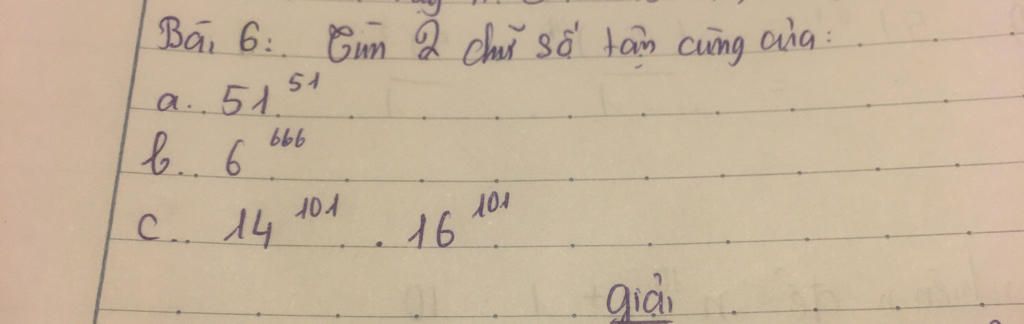 Bài 6: Tìm 2 chữ số tận cùng của:
a. 51^51
b. 6^666
c. 14^101 . 16^101
giải